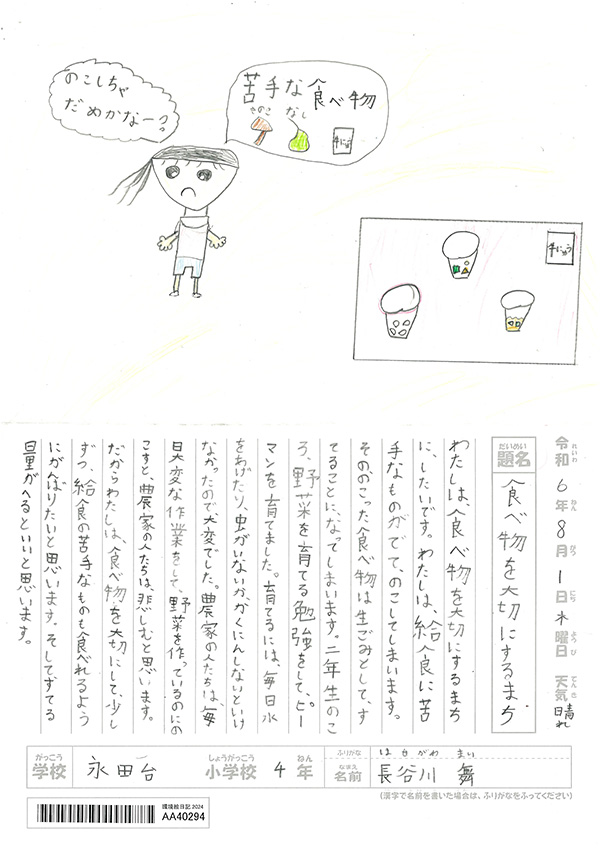 のこしちゃ
だめかなー?
苦手な食べ物
きのこ
なし
牛にゅう
牛にゅう
令和6年8月1日木曜日 天気 晴れ
れいわ ねん がつ にち ようび てんき
だいめい
題名 食べ物を大切にするまち
わたしは、食べ物を大切にするまち
に、したいです。わたしは、給食に苦
手なものがでて、のこしてしまいます。
そののこった食べ物は生ごみとして、す
てることに、なってしまいます。二年生のこ
ろ、野菜を育てる勉強をして、ピー
マンを育てました。育てるには、毎日水
をあげたり、虫がいないか、かくにんしないといけ
なかったので大変でした。農家の人たちは、毎
日大変な作業をして、野菜を作っているのにの
こすと、農家の人たちは、悲しむと思います。
だからわたしは、食べ物を大切にして、少し
ずつ、給食の苦手なものも食べれるよう
にがんばりたいと思います。そしてすてる
量がへるといいと思います。
がっこう
学校 永田台
しょうがっこう
小学校 4年
ねん
ふりがな はせがわ まい
なまえ
名前 長谷川 舞
(漢字で名前を書いた場合は、ふりがなをふってください)
環境絵日記 2024
AA40294